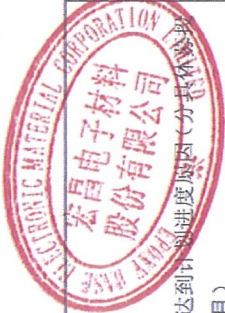 EPOXY BASE ELECTRONIC MATERIAL CORPORATION LIMITED
宏昌电子材料
股份有限公司
达到计划进度原因(分具体